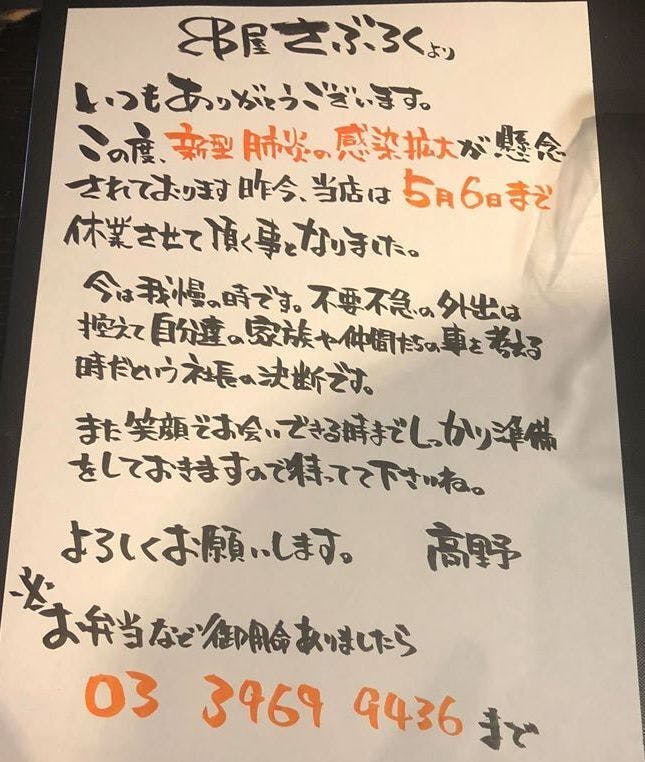 串屋さぶろくより
いつもありがとうございます。
この度、新型肺炎の感染拡大が懸念
されております昨今、当店は5月6日まで
休業させて頂く事となりました。
今は我慢の時です。不要不急の外出は
控えて自分達の家族や仲間たちの事を考える
時だという社長の決断です。
また笑顔でお会いできる時までしっかり準備
をしておきますので待ってて下さいね。
よろしくお願いします。 高野
※お弁当など御用命ありましたら
03 3969 9436まで